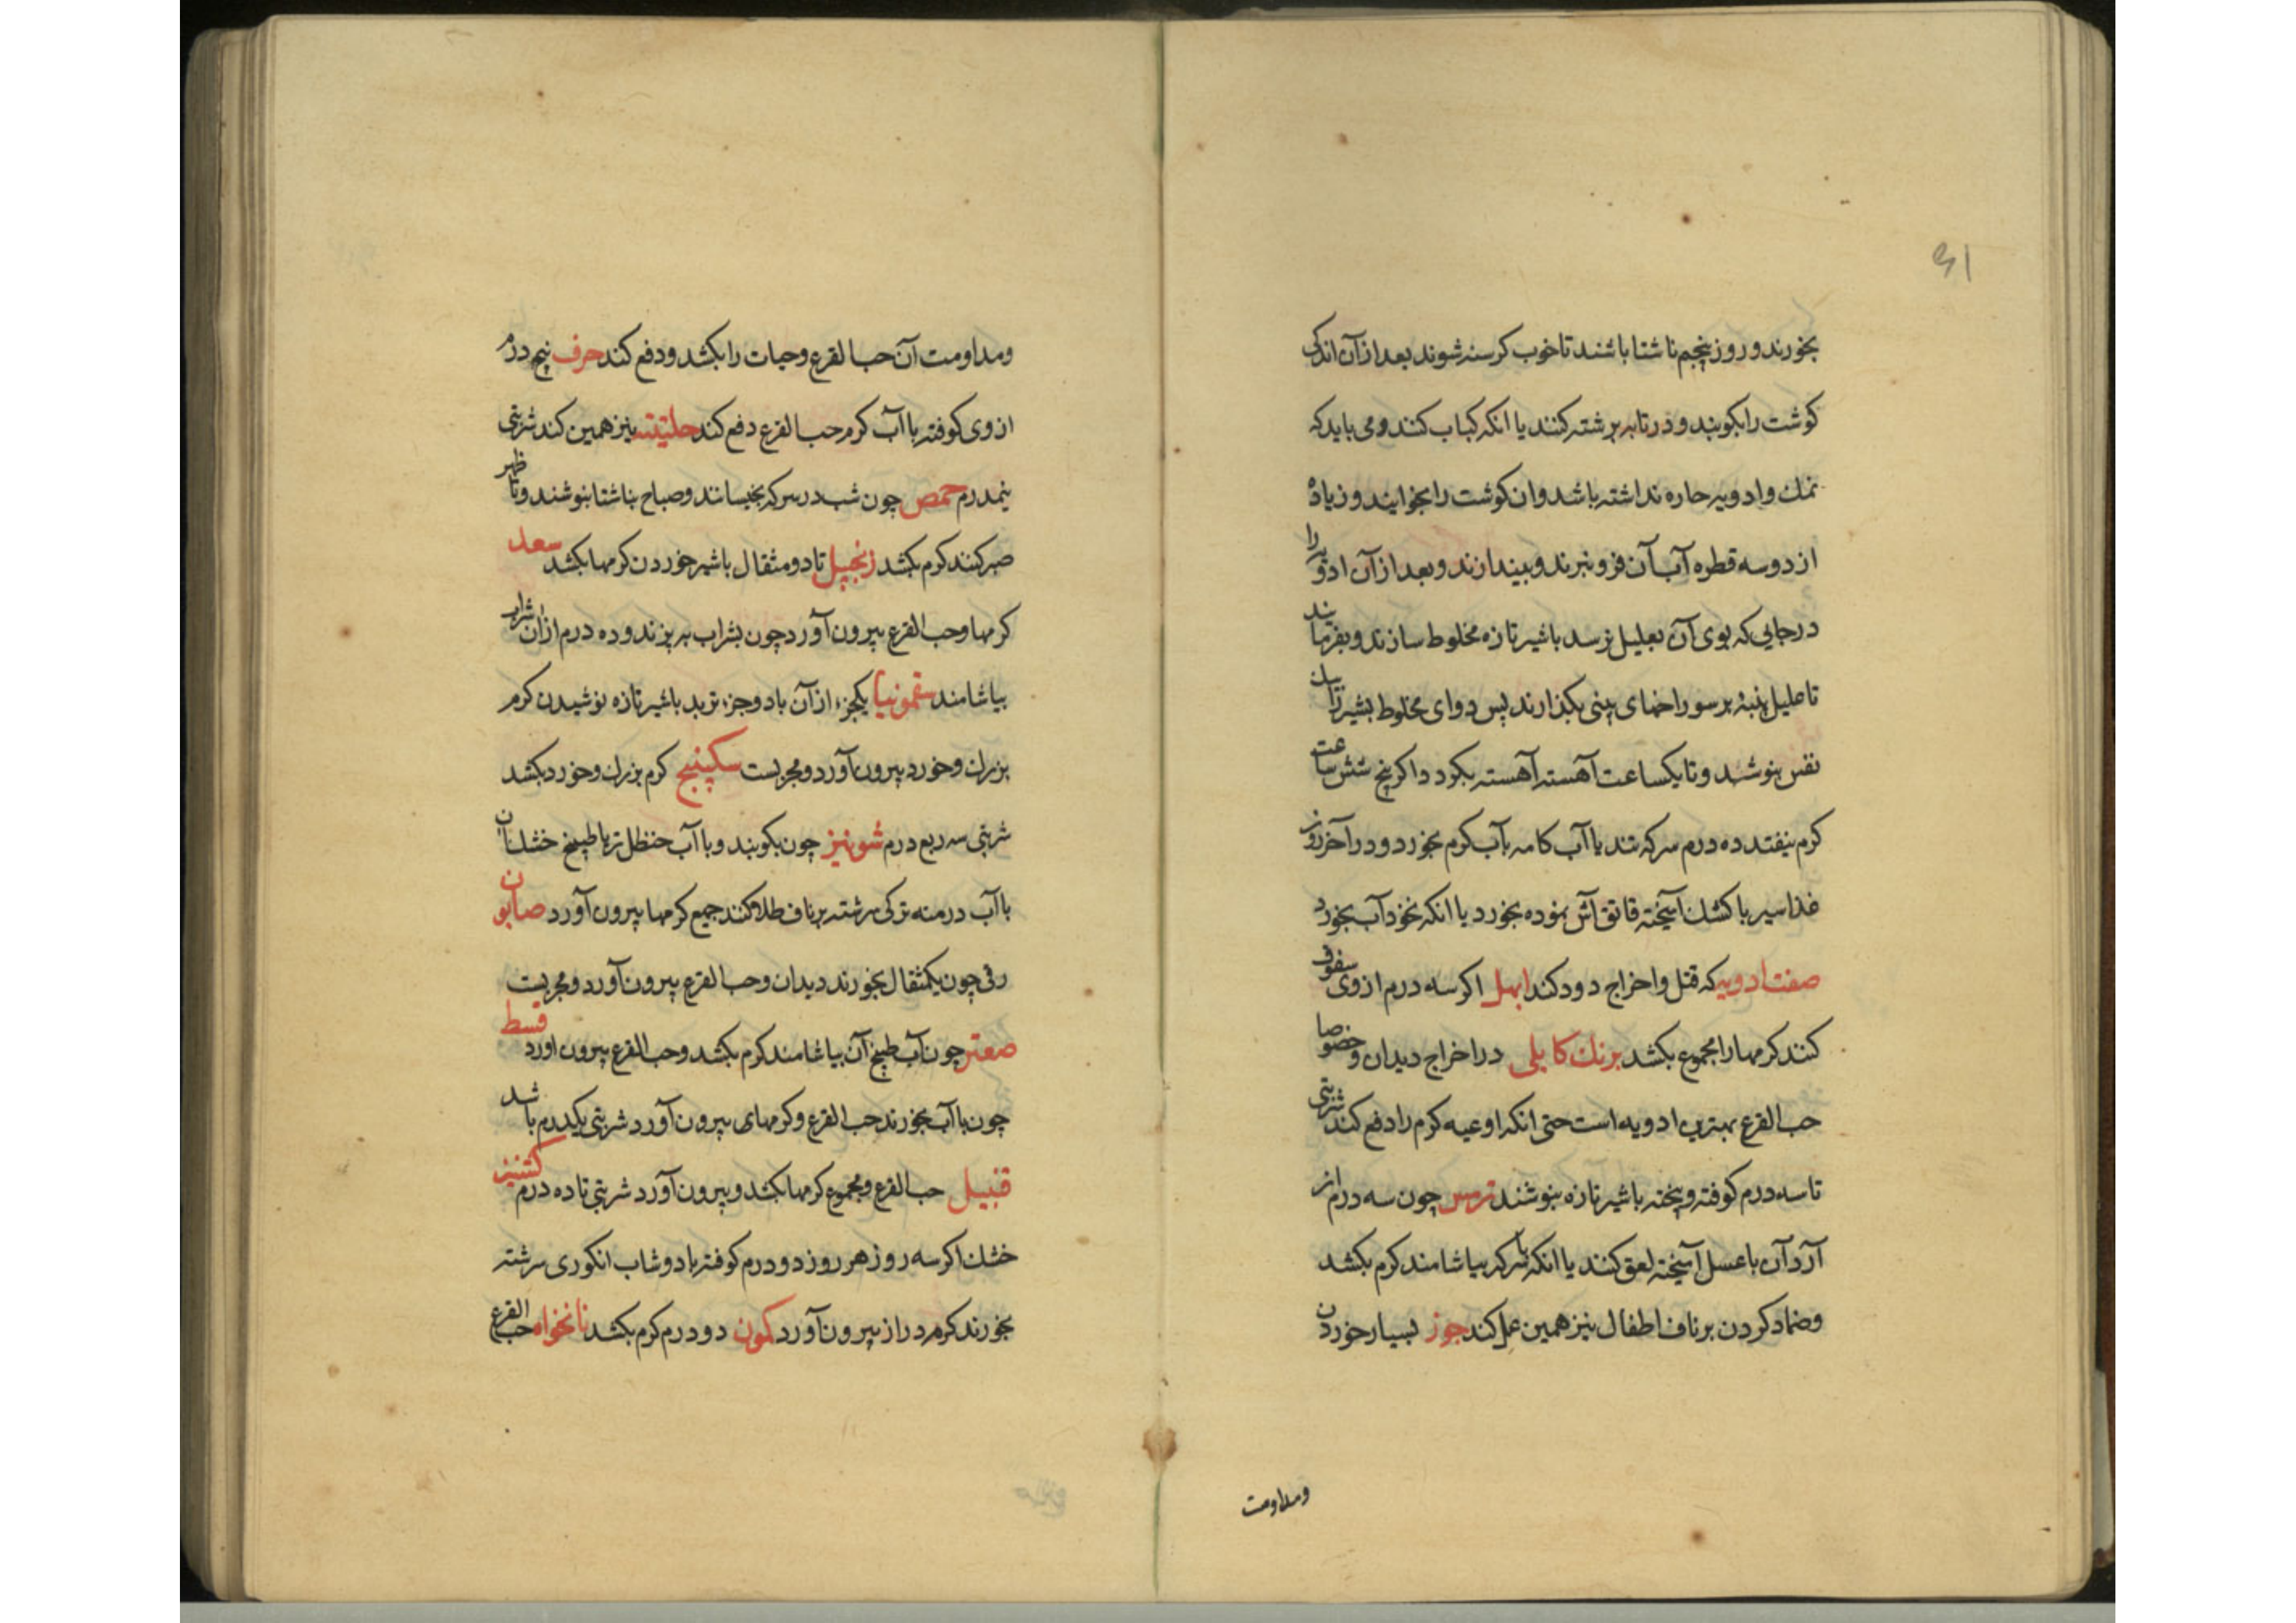 بخورند و روز پنجم ناشتا باشند تا خوب کرسنه شوند بعد از آن اندکی
کوشت را بکوبند و در تابه برشته کنند یا انکه کباب کنند و می باید که
نمک و ادویه حاره نداشته باشد و ان کوشت را بخوایند و زیاده
از دو سه قطره آب آن فرو نبرند و بیندازند و بعد از آن ادویه را
در جایی که بوی آن بعلیل نرسد با شیر تازه مخلوط سازند و بفرمایند
تا علیل پنبهٔ بر سوراخهای بینی بکذارند پس دوای مخلوط بشیر را
نفس بنوشد و تا یکساعت آهسته آهسته بکردد اکر پنج شش ساعت
کرم نیفتد ده درم سرکه تند یا آب کامه بآب کرم بخورد و در آخر روز
غذا سیر با کشک آمیخته قاتق آش نموده بخورد یا انکه نخود آب بخورد
صفت ادویه که قتل و اخراج دود کند ابهل اکر سه درم از وی سفوف
کنند کرمها را مجموع بکشد برنک کابلی در اخراج دیدان و خصوصا
حب القرع بهترین ادویه است حتی انکه اوعیه کرم را دفع کند شربتی
تا سه درم کوفته و پخته با شیر تازه بنوشند ترمس چون سه درم از
آرد آن با عسل آمیخته لعق کنند یا انکه با سرکه بیاشامند کرم بکشد
و ضماد کردن بر ناف اطفال نیز همین عمل کند جوز بسیار خوردن
و مداومت
و مداومت آن حب القرع و حیات را بکشد و دفع کند حرف پنج درم
از وی کوفته با آب کرم حب القرع دفع کند حلتیت نیز همین کند شربتی
نیمدرم حمص چون شب در سرکه بخیسانند و صباح بناشتا بنوشند و تا ظهر
صبر کنند کرم بکشد زنجبیل تا دو مثقال با شیر خوردن کرمها بکشد سعد
کرمها و حب القرع بیرون آورد چون بشراب بپزند و ده درم از ان شراب
بیاشامند سقمونیا یکجزء از آن با دو جزء تربد با شیر تازه نوشیدن کرم
بزرک و خورد بیرون آورد و مجربست سکبینج کرم بزرک و خورد بکشد
شربتی سه ربع درم شونیز چون بکوبند و با آب حنظل تر یا طبیخ خشک آن
با آب درمنه ترکی سرشته بر ناف طلا کنند جمیع کرمها بیرون آورد صابون
رقی چون یکمثقال بخورند دیدان و حب القرع بیرون آورد و مجربست
صعتر چون آب طبیخ آن بیاشامند کرم بکشد و حب القرع بیرون اورد قسط
چون با آب بخورند حب القرع و کرمهای بیرون آورد شربتی یکدرم باشد
قنبیل حب القرع و مجموع کرمها بکشد و بیرون آورد شربتی تا ده درم کشنیز
خشک اکر سه روز هر روز دو درم کوفته با دوشاب انکوری سرشته
بخورند کرم دراز بیرون آورد کمون دو درم کرم بکشد نانخواه حب القرع